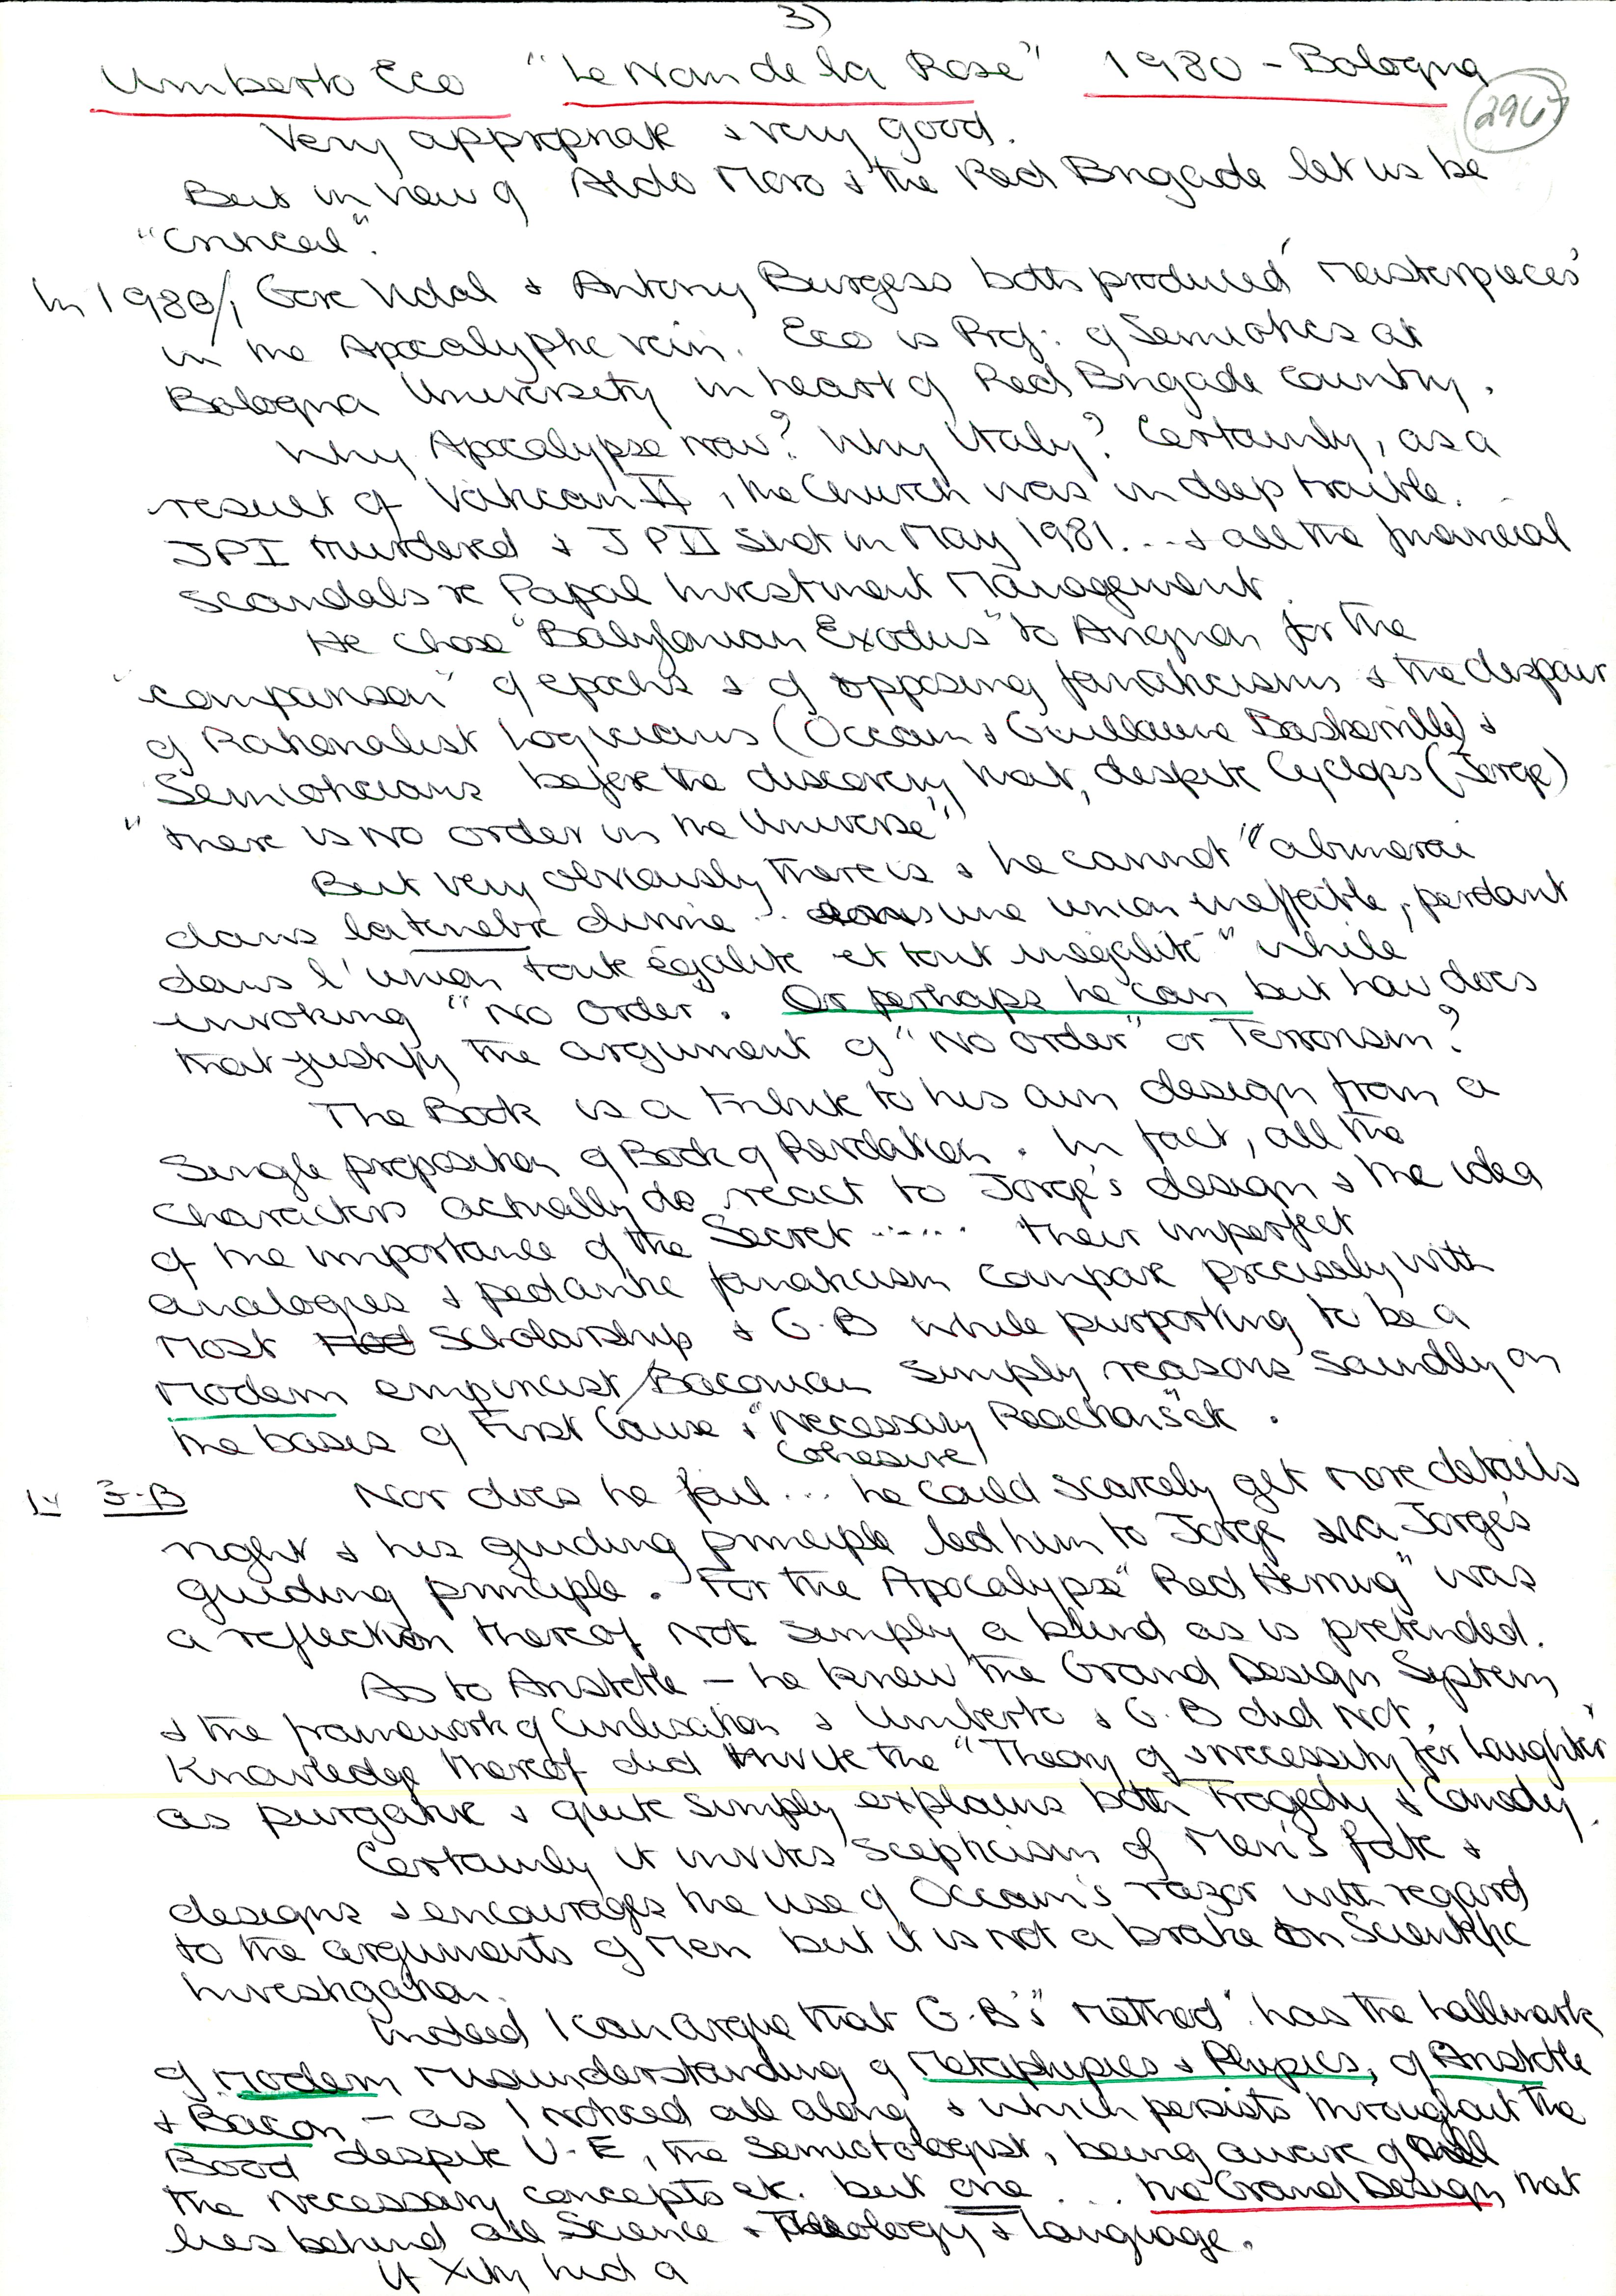 3)
Umberto Eco "Le Nom de la Rose" 1980 - Bologna
296
Very appropriate & very good.
But in view of Aldo Moro & the Red Brigade let us be
"Critical".
In 1980/1 Gore Vidal & Antony Burgess both produced 'Masterpieces'
in the Apocalyptic vein. Eco is Prof: of Semiotics at
Bologna University in heart of Red Brigade Country.
Why Apocalypse now? Why Italy? Certainly, as a
result of Vatican II, the Church was in deep trouble.
JPI murdered & JPII Shot in May 1981... & all the financial
scandals re Papal Investment Management.
He chose "Babylonian Exodus" to Avignon for the
"comparison" of epochs & of opposing fanaticisms & the despair
of Rationalist Logicians (Occam & Guillaume Baskerville) &
Semioticians before the discovery that, despite Cyclops (Jorge)
"there is No order in the Universe"
But very obviously there is & he cannot "abimerai
dans la tenebre divine .. dans une union ineffable, perdant
dans l'union toute égalité et tout inégalité" while
invoking "No Order". Or perhaps he can but how does
that justify the argument of "No order" or Terrorism?
The Book is a tribute to his own design from a
Single proposition of Book of Revelation. In fact, all the
characters actually do react to Jorge's design & the idea
of the importance of the Secret ..... their imperfect
analogies & pedantic fanaticism compare precisely with
most Mod Scholarship & G.B while purporting to be a
Modern empiricist/Baconian simply reasons soundly on
the basis of First Cause & "Necessary Reactions" etc.
Cohesive
IV 3-B Nor does he fail... he could scarcely get more details
right & his guiding principle led him to Jorge via Jorge's
guiding principle. For the Apocalypse "Red Herring" was
a reflection thereof not simply a blind as is pretended.
As to Aristotle - he knew the Grand Design System
& the framework of Civilisation & Umberto & G.B did not.
Knowledge thereof did invite the "Theory of necessity for Laughter"
as purgative & quite simply explains both Tragedy & Comedy.
Certainly it invites scepticism of Men's fate &
designs & encourages the use of Occam's razor with regard
to the arguments of Men but it is not a brake on Scientific
Investigation.
Indeed I can argue that G.B's "Method" has the hallmark
of Modern Misunderstanding of Metaphysics & Physics, of Aristotle
& Bacon - as I noticed all along & which persists throughout the
Book despite U.E, the Semiotologist, being aware of all
the necessary concepts etc. but one ... the Grand Design that
lies behind all Science & Theology & Language.
If Xity had a